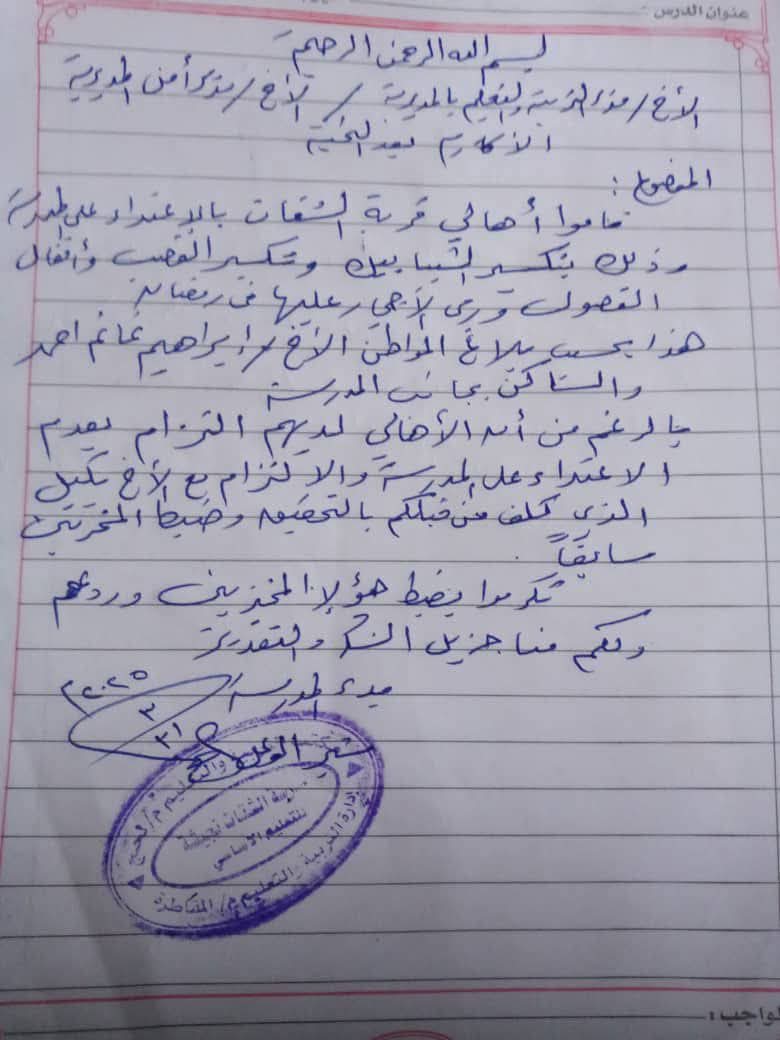 عنوان الدرس :
بسم الله الرحمن الرحيم
الأخ / مدير التربية والتعليم بالمديرية / الأخ / مدير أمن المديرية
الأكارم بعد التحية
الموضوع :
قاموا أهالي قرية الشقات بالاعتداء على المدرسة
وذلك بتكسير الشبابيك وتكسير القصب وأقفال
الفصول ورمي الأحجار عليها في رمضان
هذا بحسب بلاغ المواطن الأخ / إبراهيم غانم احمد
والساكن بجانب المدرسة
بالرغم من أن الأهالي لديهم التزام بعدم
الاعتداء على المدرسة والالتزام مع الأخ
الذي كلف من قبلكم بالتحقيق وضبط المخربين
سابقاً
تكرموا بضبط هؤلاء المخربين وردعهم
ولكم منا جزيل الشكر والتقدير
مدير المدرسة
٢٠٢٥
٣
٣١
والتعليم م/لحج
للتعليم الأساسي
إدارة التربية والتعليم م/ المقاطرة
الواجب :